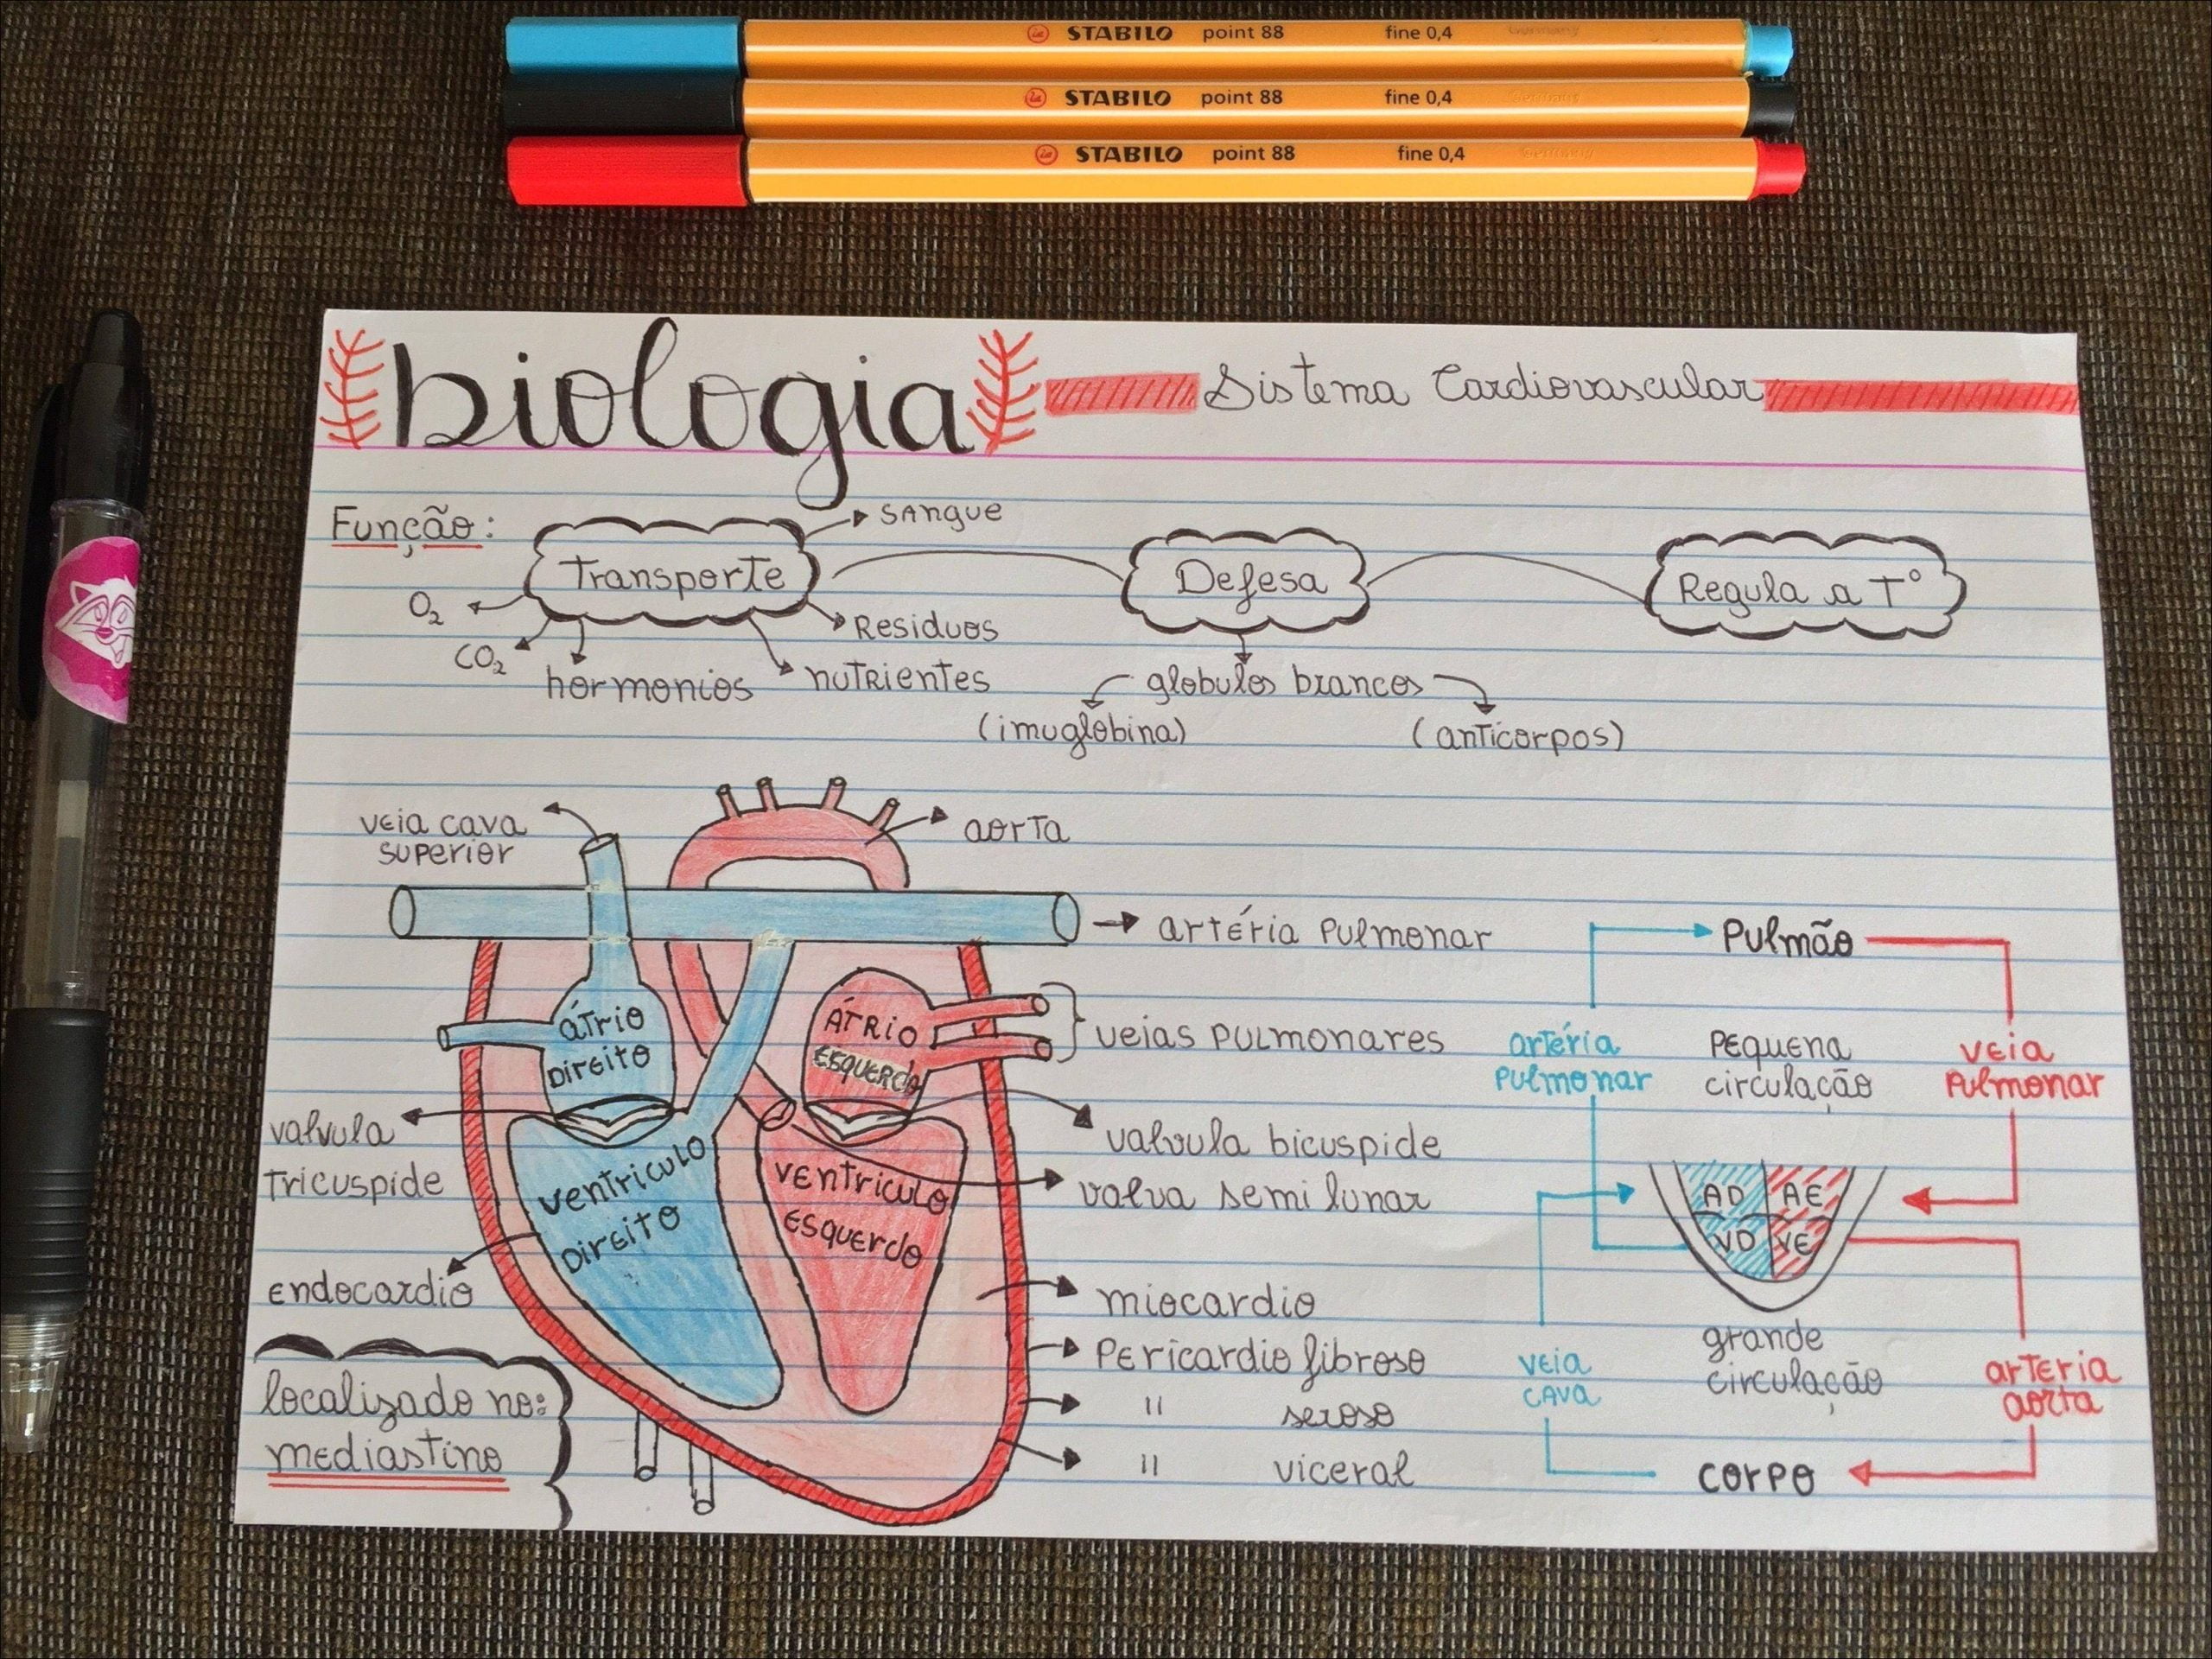 STABILO point 88 fine 0,4 Germany
STABILO point 88 fine 0,4 Germany
STABILO point 88 fine 0,4 Germany
biologia Sistema Cardiovascular
Função:
Transporte
sangue
O₂
CO₂
hormonios
nutrientes
Residuos
Defesa
globulos brancos
(imuglobina)
(anticorpos)
Regula a T°
veia cava
superior
aorta
artéria pulmonar
átrio
Direito
ÁTRIO
ESQUERDO
veias pulmonares
valvula
tricuspide
valvula bicuspide
valva semi lunar
ventriculo
Direito
ventriculo
esquerdo
endocardio
miocardio
Pericardio fibroso
" seroso
" viceral
localizado no:
mediastino
Pulmão
artéria
pulmonar
Pequena
circulação
veia
pulmonar
AD AE
VD VE
grande
circulação
veia
cava
arteria
aorta
corpo